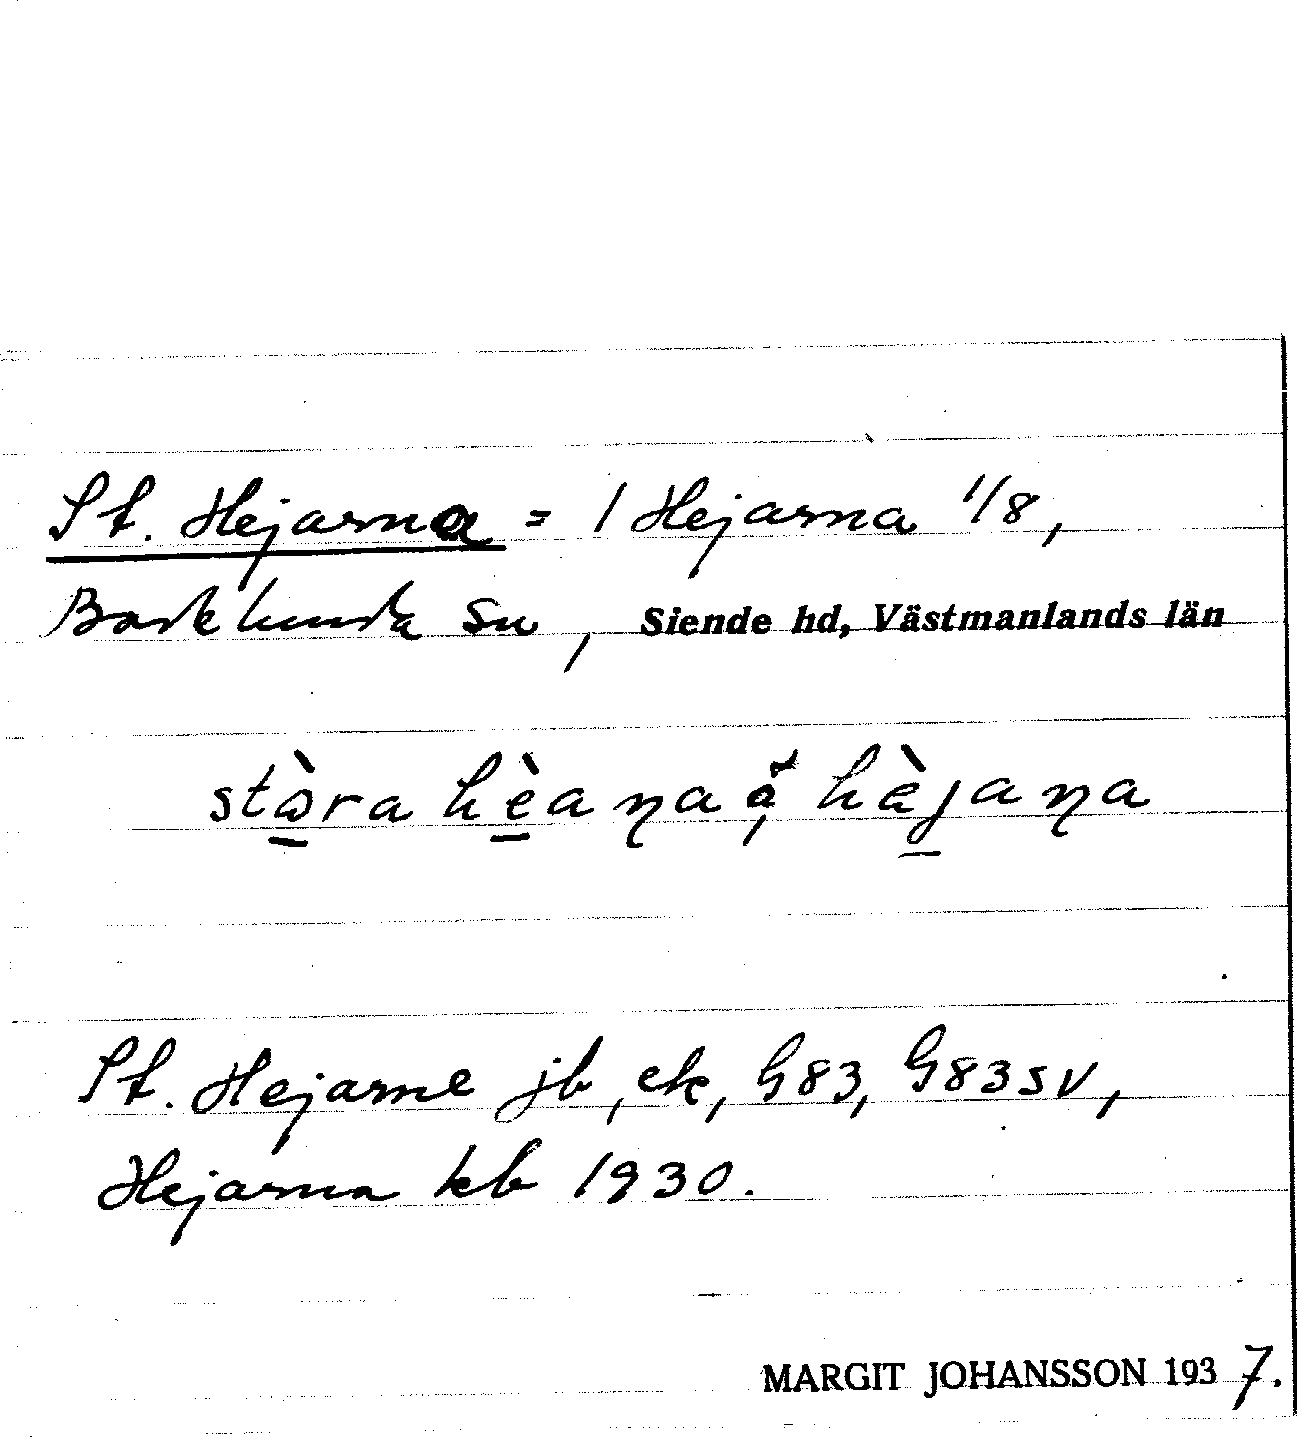 St. Hejarna = 1 Hejarna 1/8,
Barklunda sn, Siende hd, Västmanlands län
stɷ̀ra hèaɳa, å̆ hèjaɳa
St. Hejarne jb, ek, G83, G83sv,
Hejarna kb 1930.
MARGIT JOHANSSON 1937.